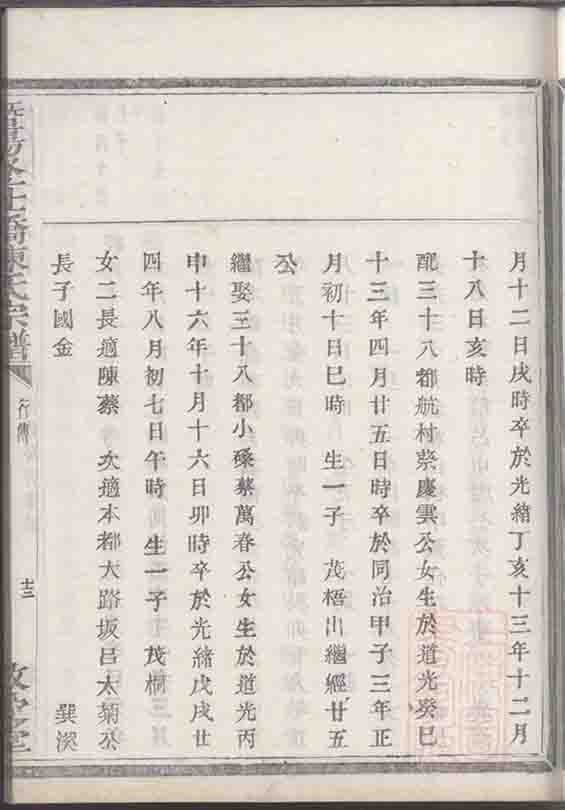 月十二日戌時卒於光緒丁亥十三年十二月
十八日亥時
配三十八都航村蔡慶雲公女生於道光癸巳
十三年四月廿五日時卒於同治甲子三年正
月初十日巳時 生一子 茂梧出繼經廿五
公
繼娶三十八都小磜蔡萬春公女生於道光丙
申十六年十月十六日卯時卒於光緒戊戌廿
四年八月初七日午時 生一子 茂桐
女二長適陳蔡 次適本都大路坂呂太菊公
長子國金 巽溪
陳氏宗譜
行傳
十三
堂